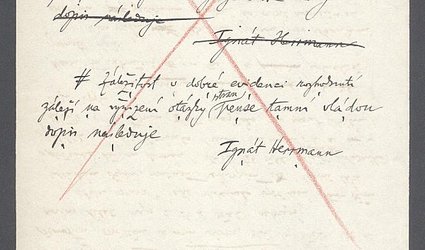 dopis následuje
Ignát Herrmann
# Záležitost v dobré evidenci rozhodnutí
záleží na vyřízení otázky pense tamní vládou
dopis následuje
Ignát Herrmann